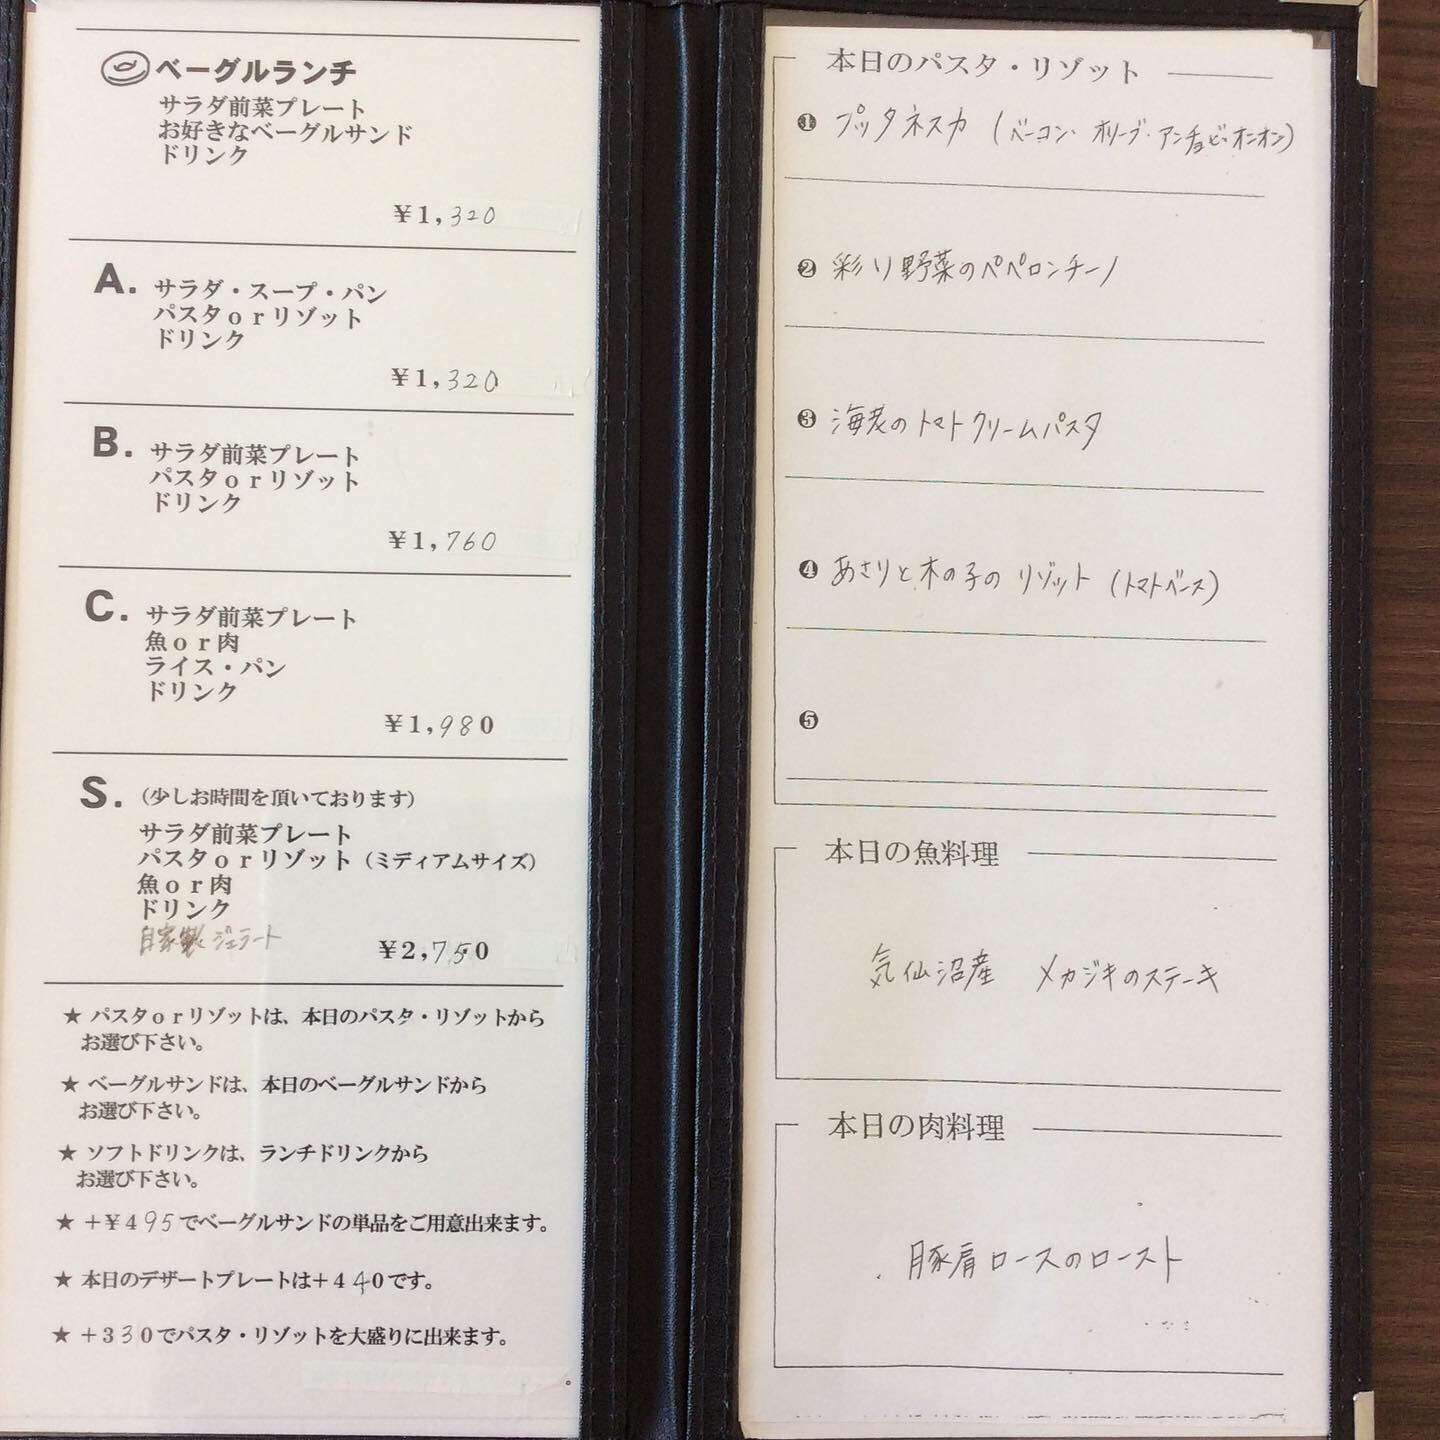 ベーグルランチ
サラダ前菜プレート
お好きなベーグルサンド
ドリンク
¥1,320
A.
サラダ・スープ・パン
パスタorリゾット
ドリンク
¥1,320
B.
サラダ前菜プレート
パスタorリゾット
ドリンク
¥1,760
C.
サラダ前菜プレート
魚or肉
ライス・パン
ドリンク
¥1,980
S.(少しお時間を頂いております)
サラダ前菜プレート
パスタorリゾット(ミディアムサイズ)
魚or肉
ドリンク
自家製ジェラート
¥2,750
★ パスタorリゾットは、本日のパスタ・リゾットから
お選び下さい。
★ ベーグルサンドは、本日のベーグルサンドから
お選び下さい。
★ ソフトドリンクは、ランチドリンクから
お選び下さい。
★ +¥495でベーグルサンドの単品をご用意出来ます。
★ 本日のデザートプレートは+440です。
★ +330でパスタ・リゾットを大盛りに出来ます。
本日のパスタ・リゾット
❶ プッタネスカ (ベーコン・オリーブ・アンチョビ・オニオン)
❷ 彩り野菜のペペロンチーノ
❸ 海老のトマトクリームパスタ
❹ あさりと木の子のリゾット (トマトベース)
❺
本日の魚料理
気仙沼産 メカジキのステーキ
本日の肉料理
豚肩ロースのロースト